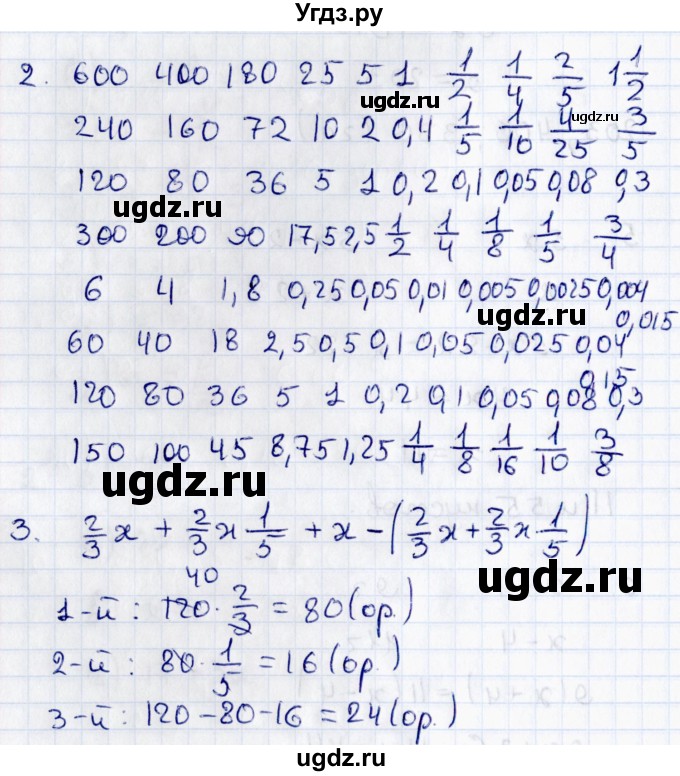 Угдз.ру
2. 600 400 180 25 5 1 1/2 1/4 2/5 1 1/2
ugdz.ru
ugdz.ru
240 160 72 10 2 0,4 1/5 1/10 4/25 3/5
120 80 36 5 1 0,2 0,1 0,05 0,08 0,3
ugdz.ru
300 200 90 17,5 2,5 1/2 1/4 1/8 1/5 3/4
6 4 1,8 0,25 0,05 0,01 0,005 0,0025 0,004
0,015
ugdz.ru
60 40 18 2,5 0,5 0,1 0,05 0,025 0,04
0,15
120 80 36 5 1 0,2 0,1 0,05 0,08 0,3
150 100 45 8,75 1,25 1/4 1/8 1/16 1/10 3/8
ugdz.ru
3. 2/3 х + 2/3 х 1/5 + х - (2/3 х + 2/3 х 1/5)
40
ugdz.ru
1-й: 120 · 2/3 = 80 (ор.)
2-й: 80 · 1/5 = 16 (ор.)
3-й: 120 - 80 - 16 = 24 (ор.)
ugdz.ru